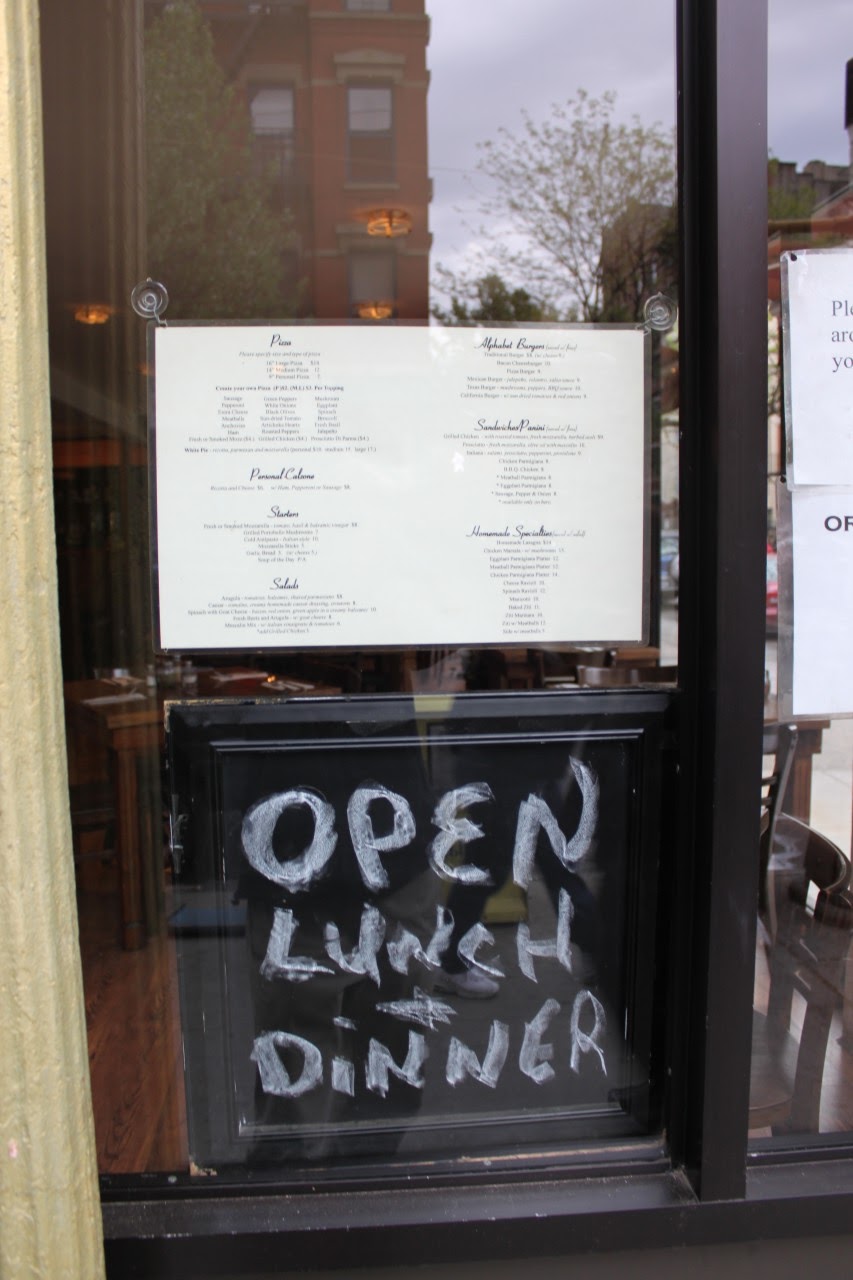 Pizza
Please specify size and type of pizza
16" Large Pizza $14
14" Medium Pizza 12
9" Personal Pizza 7
Create your own Pizza (P)$1. (M,L) $3. Per Topping
Sausage Green Peppers Mushroom
Pepperoni White Onions Eggplant
Extra Cheese Black Olives Spinach
Meatballs Sun dried Tomato Broccoli
Anchovies Artichoke Hearts Fresh Basil
Ham Roasted Peppers Jalapeño
Fresh or Smoked Mozz ($4.) Grilled Chicken ($4.) Prosciutto Di Parma ($4.)
White Pie - ricotta, parmesan and mozzarella
Personal Calzone
Ricotta and Cheese $6. w/ Ham, Pepperoni or Sausage $8.
Starters
Fresh or Smoked Mozzarella - tomato, basil & balsamic vinegar $8
Grilled Portobello Mushrooms 7
Cold Antipasto - Italian style 10
Mozzarella Sticks 5
Garlic Bread 3 (w/ cheese 5.)
Soup of the Day P/A
Salads
Arugula - tomatoes, balsamic, shaved parmesan
Caesar - romaine, creamy homemade caesar dressing, croutons 8.
Spinach with Goat Cheese -
Fresh Beets and Arugula - w/ goat cheese 8
Mesculin Mix - w/ italian vinaigrette & tomatoes 6
*add Grilled Chicken
Alphabet Burgers
Traditional Burger $8.
Bacon Cheeseburger 10.
Pizza Burger 9.
Mexican Burger -
Texas Burger -
California Burger -
Sandwiches/Panini
Grilled Chicken - with roasted tomato, fresh mozzarella,
Prosciutto - fresh mozzarella,
Italiano - salami, prosciutto, pepperoni, provolone 9.
Chicken Parmigiana 8.
B.B.Q. Chicken 8.
* Meatball Parmigiana 8.
* Eggplant Parmigiana 8.
* Sausage, Pepper & Onion 8.
* available only on hero
Homemade Specialties
Homemade Lasagna $14
Chicken Marsala - w/ mushrooms 15.
Eggplant Parmigiana Platter 12.
Meatball Parmigiana Platter 12.
Chicken Parmigiana Platter 14.
Cheese Ravioli 10.
Spinach Ravioli 12.
Manicotti 10.
Baked Ziti 11.
Ziti Marinara 10.
Ziti w/ Meatballs 12
Side w/ meatballs 5
OPEN
LUNCH
DINNER
OR